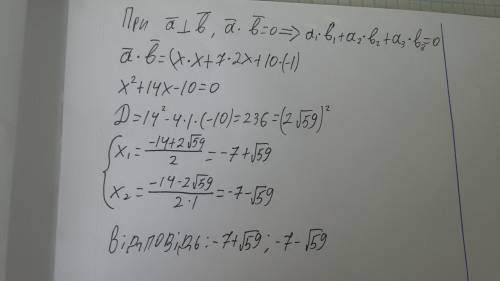 При a̅⊥b̅, a̅·b̅=0 ⟹ a₁·b₁+a₂·b₂+a₃·b₃=0
a̅·b̅=(x·x+7·2x+10·(-1)
x²+14x-10=0
D=14²-4·1·(-10)=236=(2√59)²
{x₁=(-14+2√59)/2=-7+√59
x₂=(-14-2√59)/(2·1)=-7-√59
Відповідь: -7+√59; -7-√59